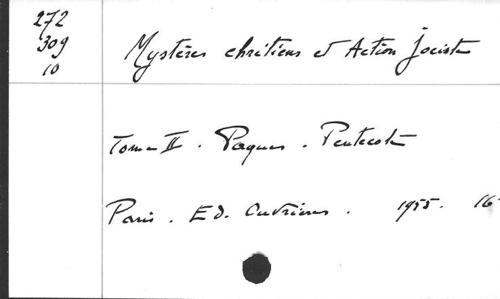 272
309
10
Mystères chrétiens et Action Jociste
Tome II. Paques. Pentecote
Paris. Ed. Ouvrières. 1955. 16